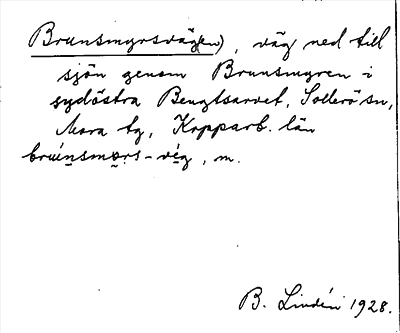 Brunsmyrsväg(en), väg ned till
sjön genom Brunsmyren i
sydöstra Bengtsarvet, Sollerö sn,
Mora tg, Kopparb. län
brúnsmọrs-vég, m.
B. Lindén 1928.